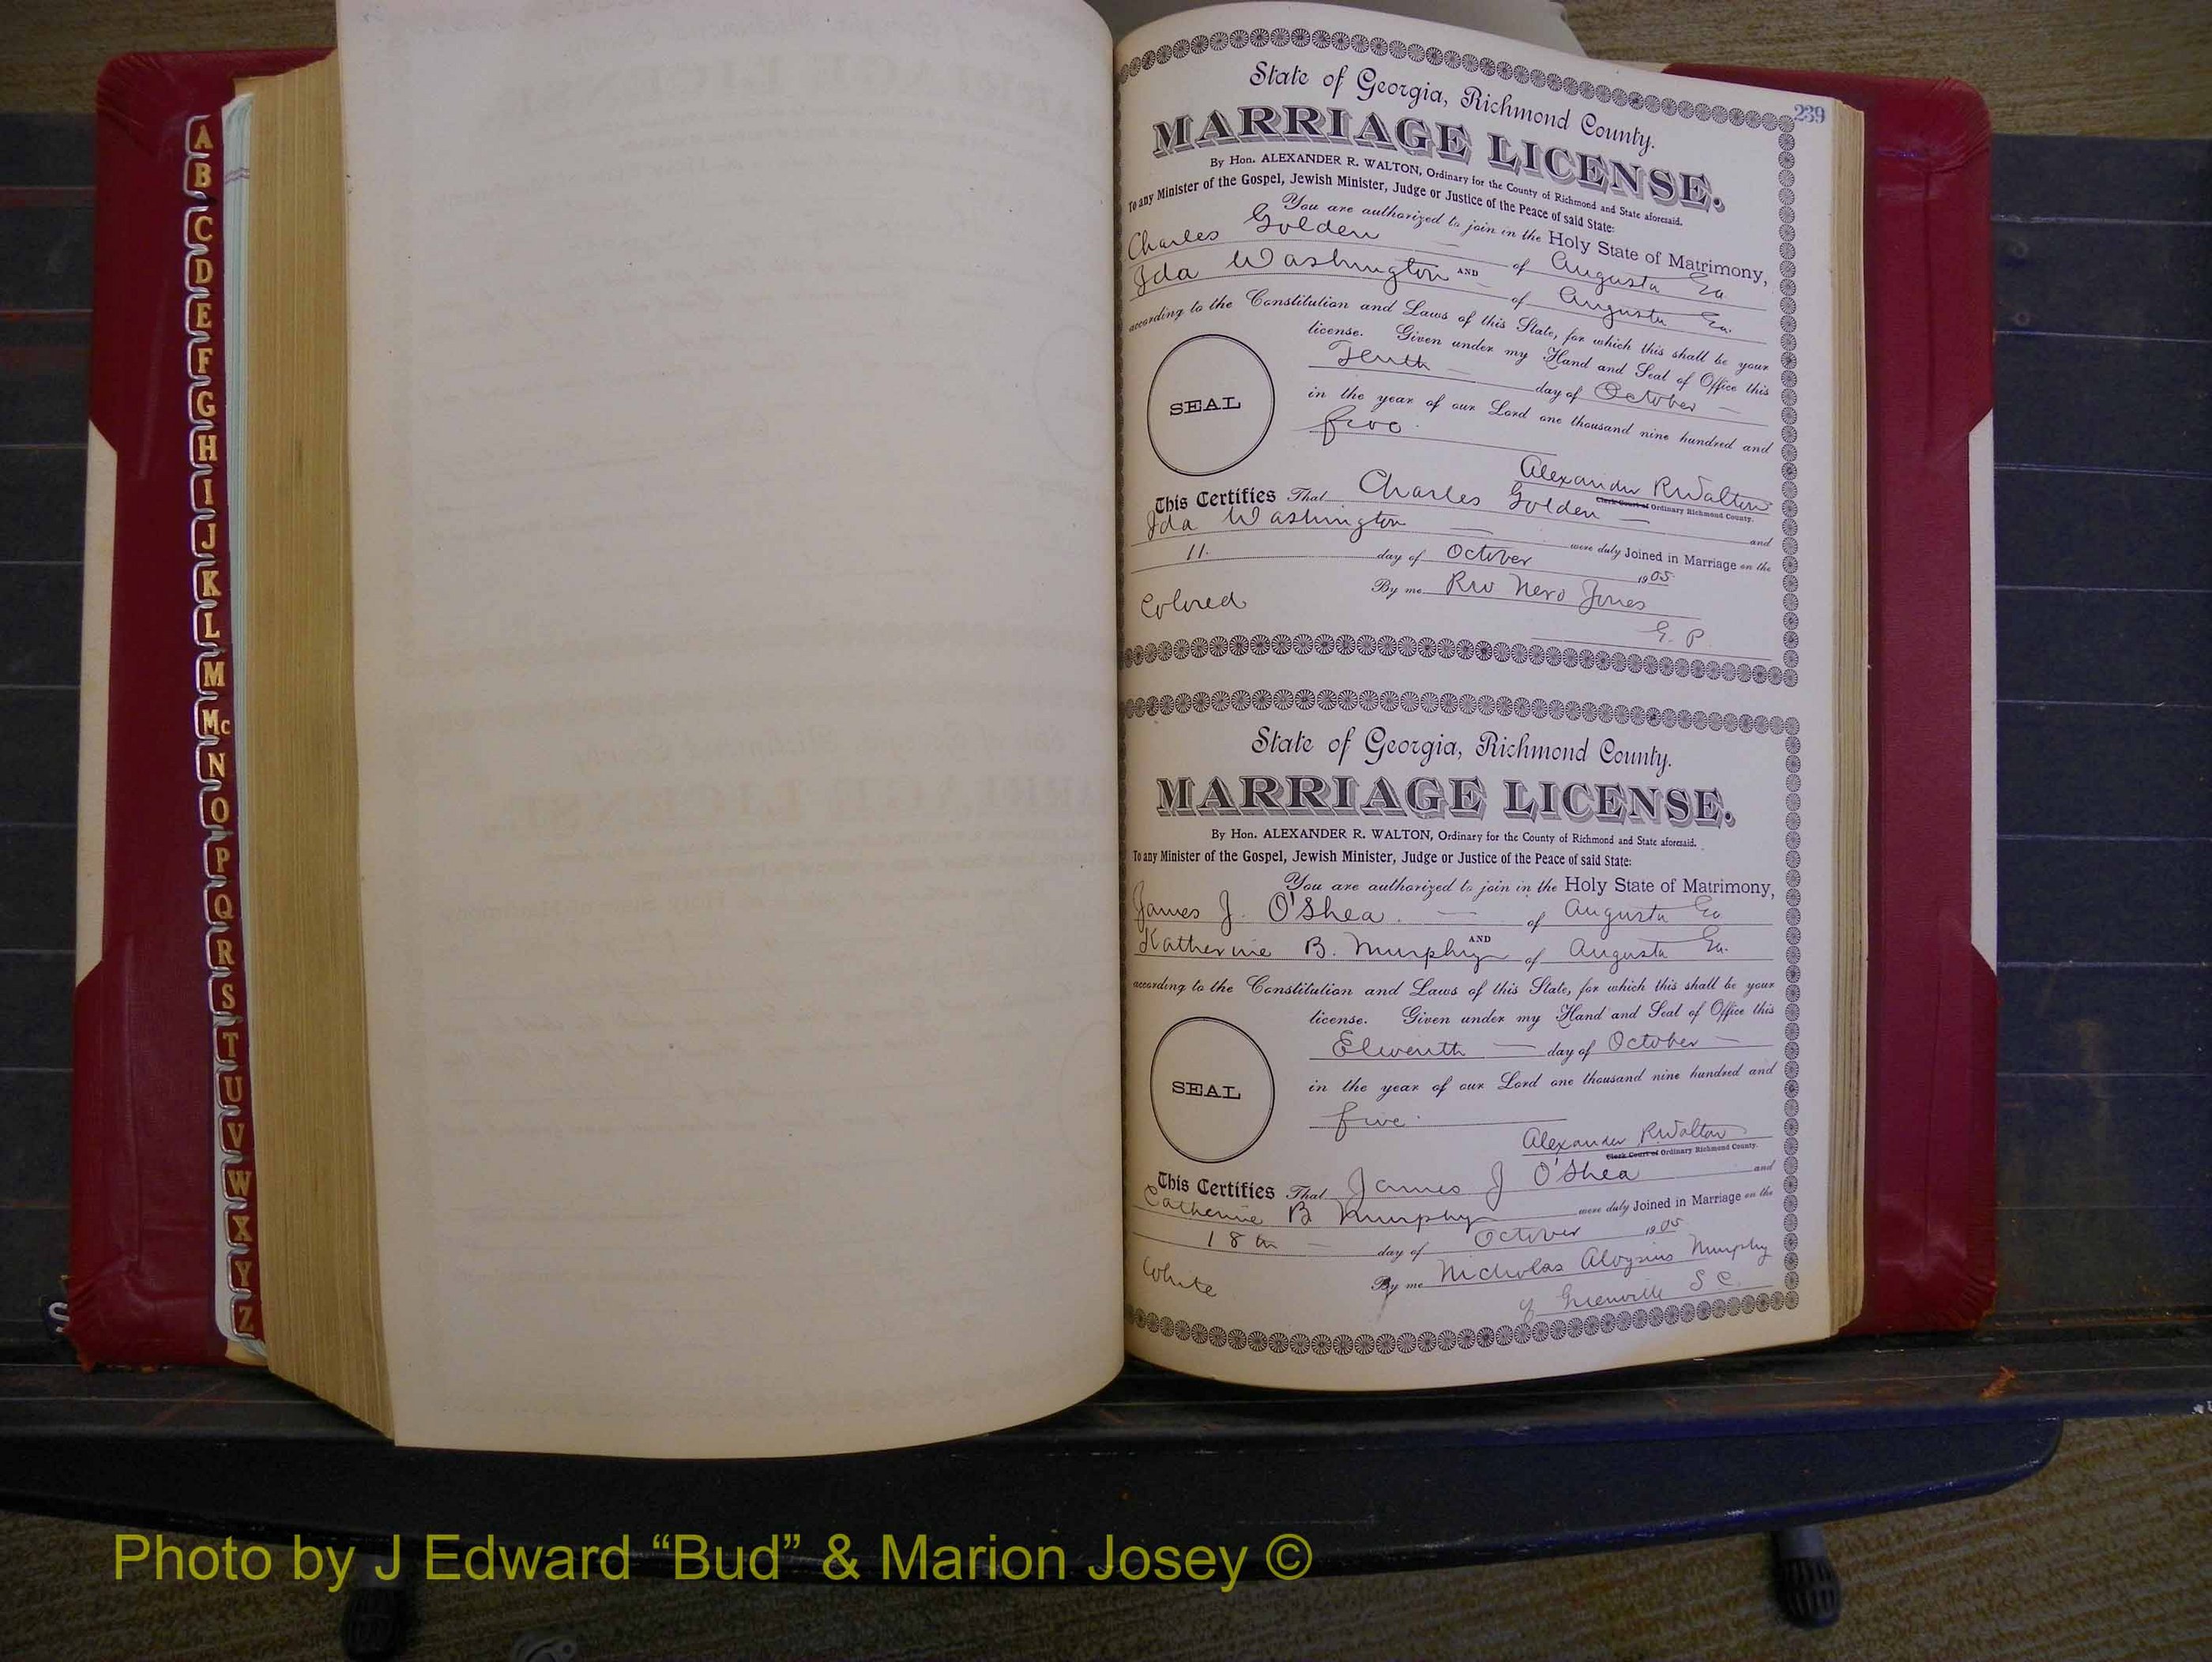 A
B
C
D
E
F
G
H
I
J
K
L
M
Mc
N
O
P
Q
R
S
T
U
V
W
X
Y
Z
239
State of Georgia, Richmond County.
MARRIAGE LICENSE.
By Hon. ALEXANDER R. WALTON, Ordinary for the County of Richmond and State aforesaid.
To any Minister of the Gospel, Jewish Minister, Judge or Justice of the Peace of said State:
You are authorized to join in the Holy State of Matrimony,
Charles Golden — of Augusta Ga
AND
Ida Washington — of Augusta Ga.
according to the Constitution and Laws of this State, for which this shall be your
license. Given under my Hand and Seal of Office this
Tenth — day of October —
SEAL
in the year of our Lord one thousand nine hundred and
five.
Alexander R Walton
Clerk Court of Ordinary Richmond County.
This Certifies That Charles Golden — and
Ida Washington — were duly Joined in Marriage on the
11. day of October 1905
By me Rev Nero Jones
Colored
G. P.
State of Georgia, Richmond County.
MARRIAGE LICENSE.
By Hon. ALEXANDER R. WALTON, Ordinary for the County of Richmond and State aforesaid.
To any Minister of the Gospel, Jewish Minister, Judge or Justice of the Peace of said State:
You are authorized to join in the Holy State of Matrimony,
James J. O'Shea. — of Augusta Ga
AND
Katherine B. Murphy of Augusta Ga.
according to the Constitution and Laws of this State, for which this shall be your
license. Given under my Hand and Seal of Office this
Eleventh — day of October —
SEAL
in the year of our Lord one thousand nine hundred and
five.
Alexander R Walton
Clerk Court of Ordinary Richmond County.
This Certifies That James J O'Shea and
Catherine B Murphy were duly Joined in Marriage on the
18th — day of October 1905
By me Nicholas Aloysius Murphy
White
of Greenville S C.
Photo by J Edward “Bud” & Marion Josey ©